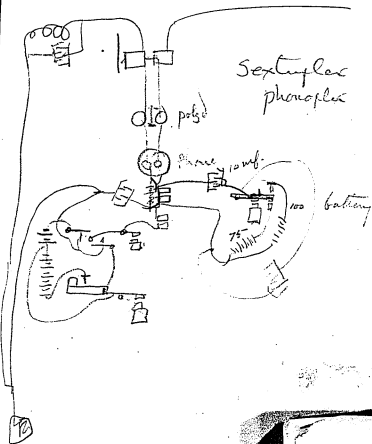 Sextuplex
phonoplex
polzd
Phone
10 mf.
100
battery
75